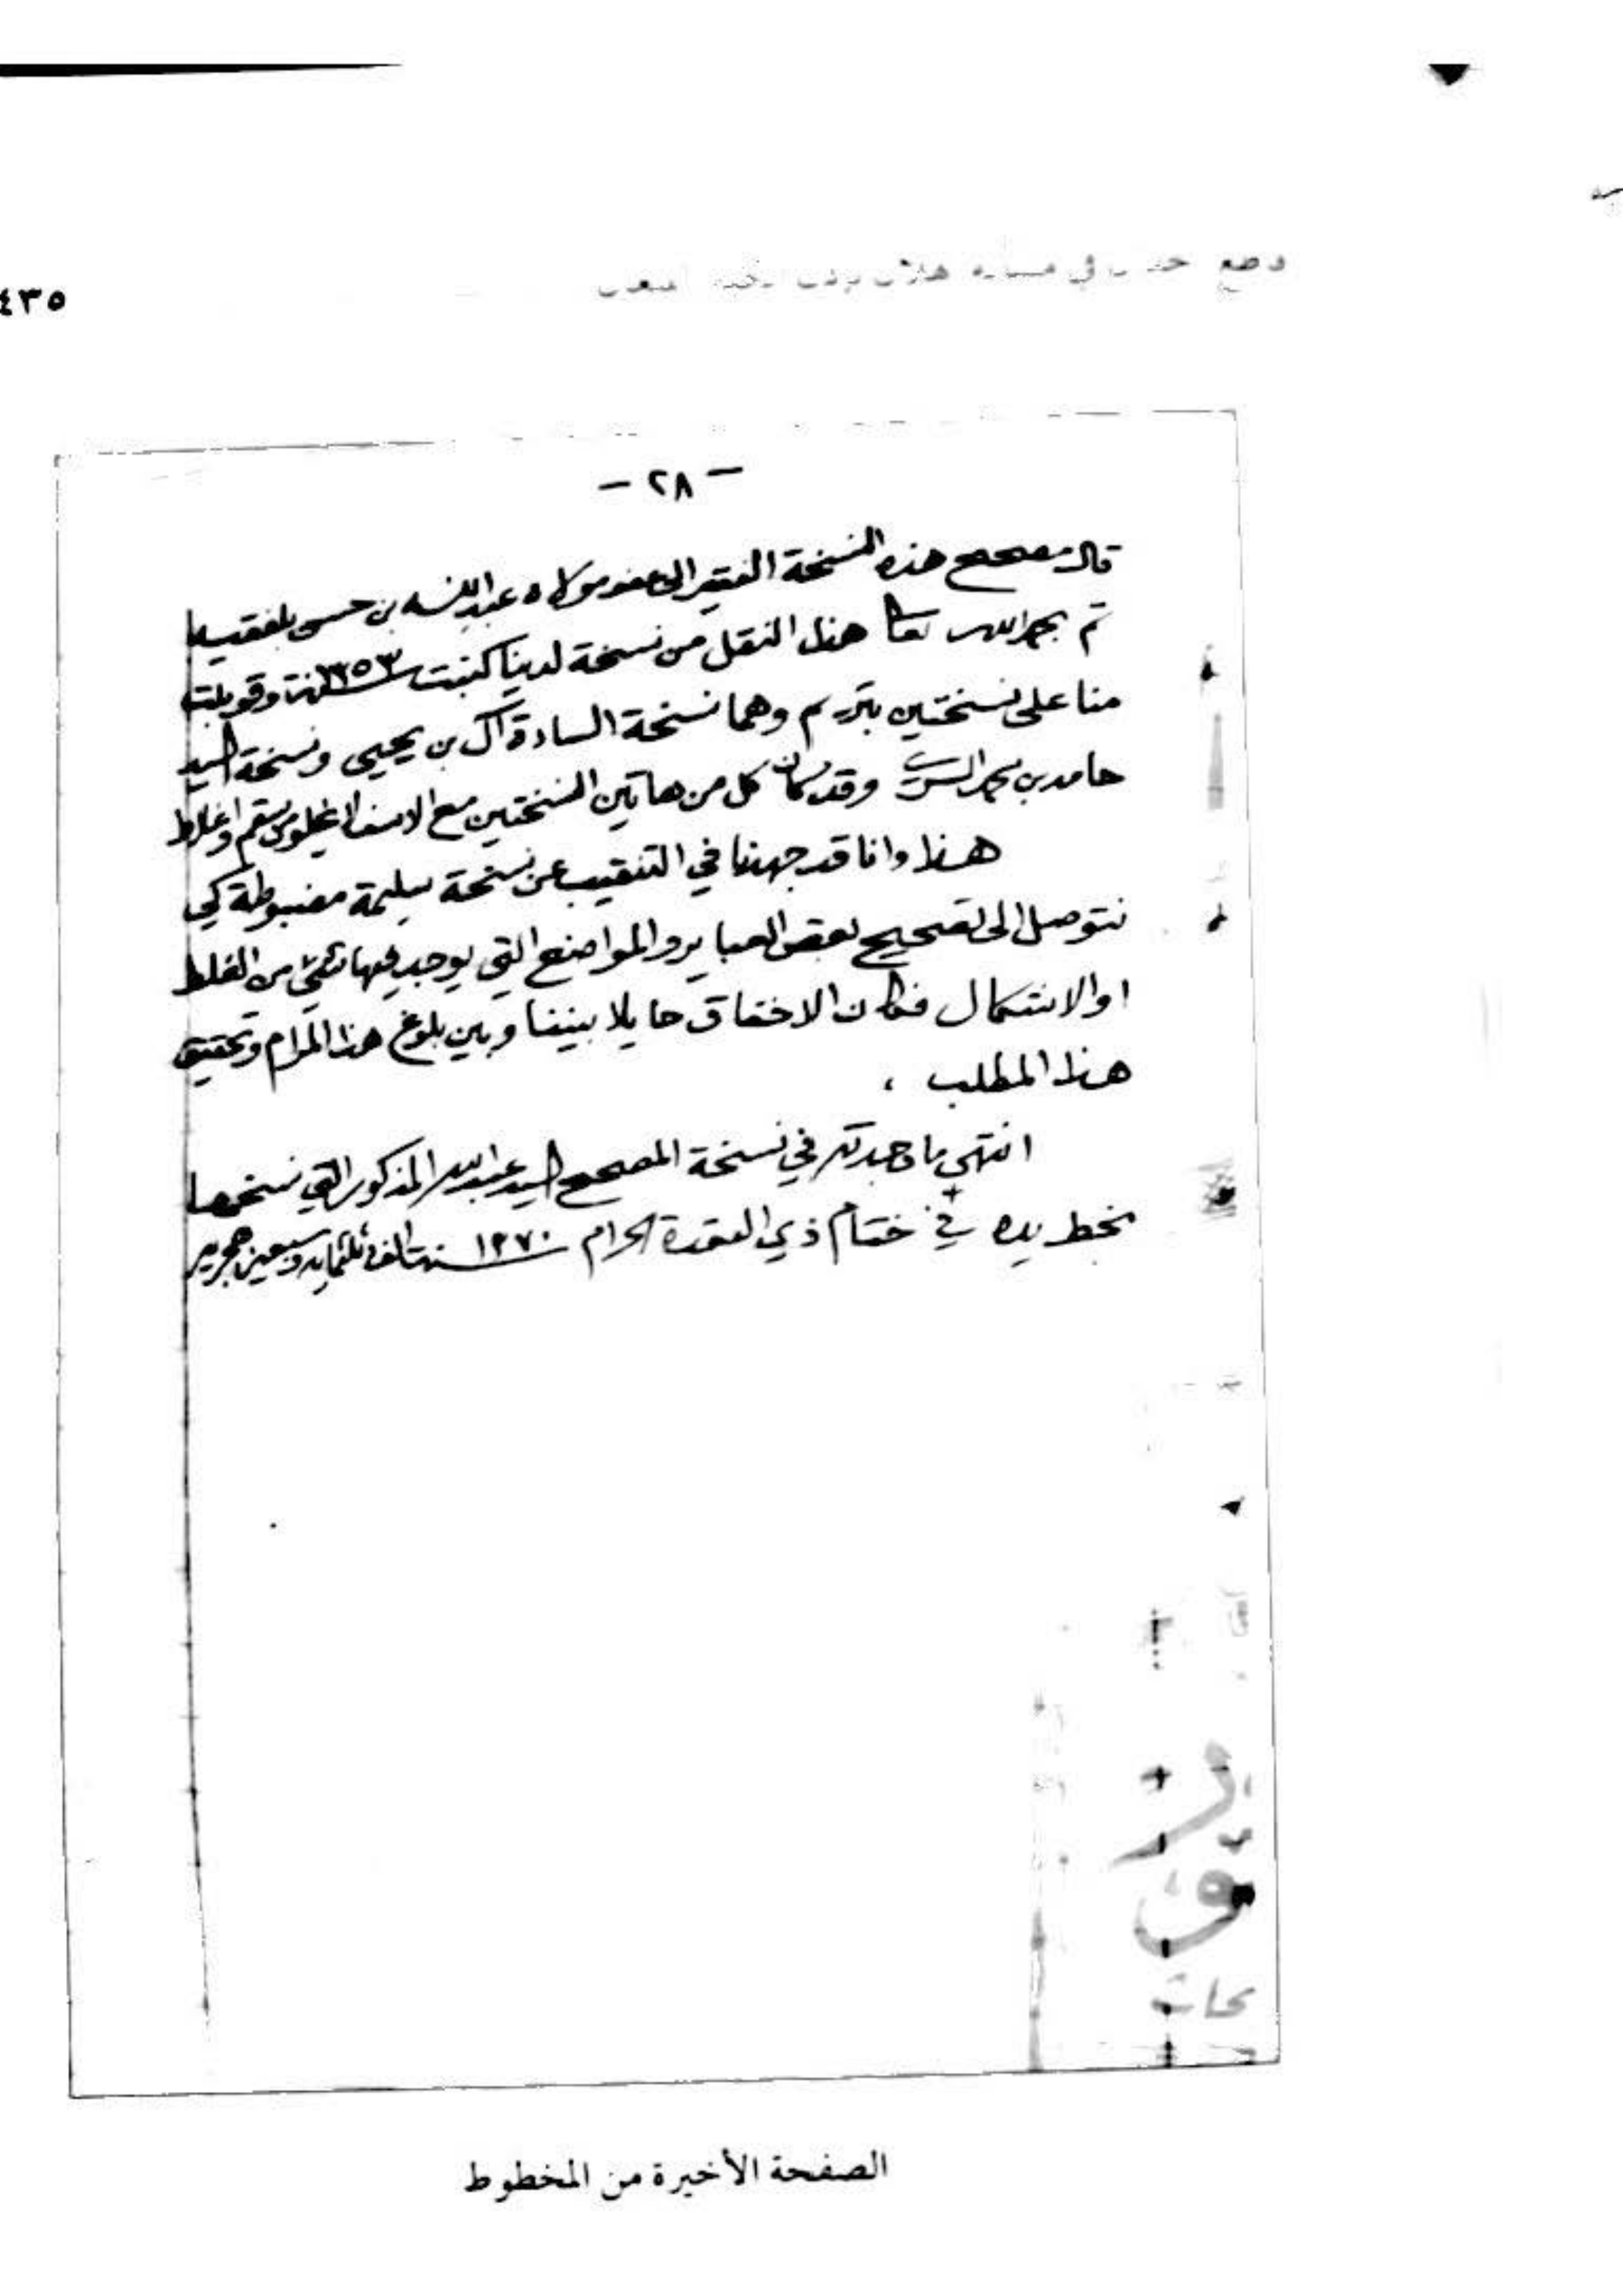 في هلال
٤٣٥
- ٢٨ -
قال مصحح هذه النسخة الفقير الى عفو مولاه عبدالله بن حسن بلفقيه
تم بحمد الله تعالى هذا النقل من نسخة لدينا كتبت سنة ١٣٥٣ وقوبلت
منا على نسختين بتريم وهما نسخة السادة آل بن يحيى ونسخة السيد
حامد بن محمد السري وقد كان كل من هاتين النسختين مع الاسف لا يخلو من سقم واغلاط
هذا وانا قد جهدنا في التنقيب عن نسخة سليمة مضبوطة كي
نتوصل الى تصحيح بعض العباير والمواضع التي يوجد فيها شيئ من الغلط
او الاشكال فكان الاخفاق حايلا بيننا وبين بلوغ هذا المرام وتحقيق
هذا المطلب ،
انتهى ما وجدته في نسخة المصحح السيد عبدالله المذكور التي نسخها
بخط يده في ختام ذي القعدة الحرام ١٣٧٠ سنة الف وثلثمايه وسبعين هجريه
الصفحة الأخيرة من المخطوط